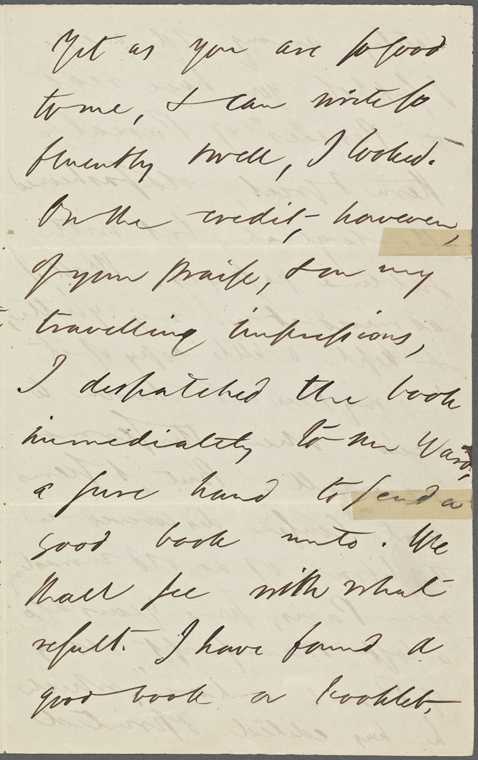 Yet as you are so good
to me, & can write so
fluently & well, I looked.
On the credit, however,
of your praise, & on my
travelling impressions,
I despatched the book
immediately to Mr Ward,
a sure hand to send a
good book unto. We
shall see with what
result. I have found a
good book or booklet,